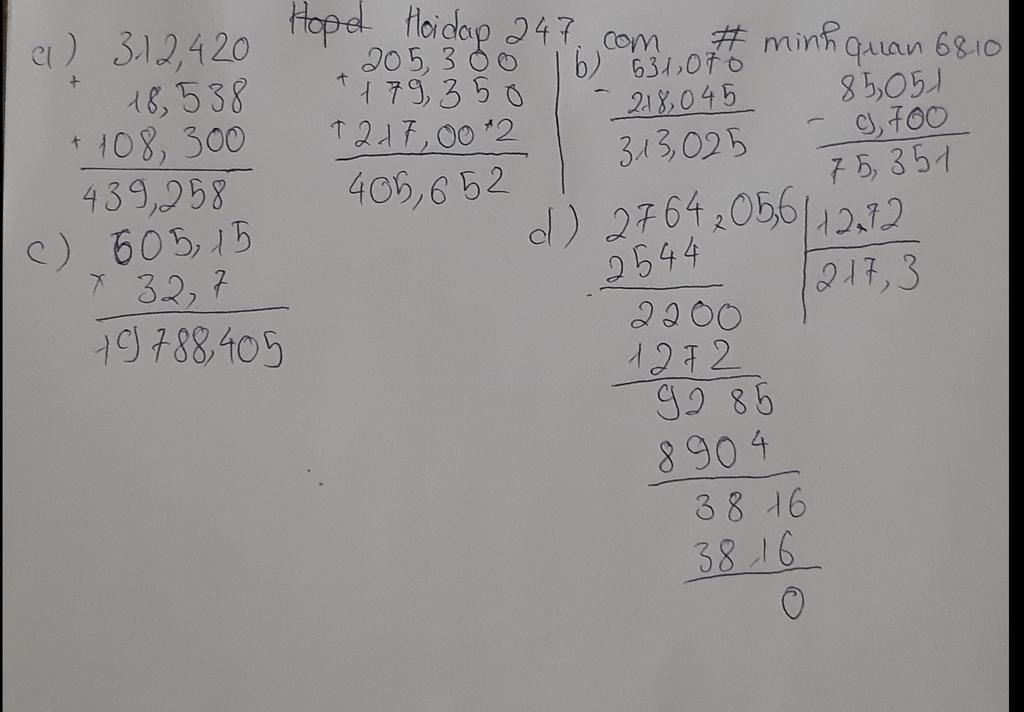 Hopd Hoidap 247.com # minhquan6810
a) 312,420
+ 18,538
+ 108,300
439,258
205,300
+ 179,350
+ 217,00*2
405,652
b) 531,070
- 218,045
313,025
85,051
- 9,700
75,351
c) 605,15
x 32,7
19788,405
d) 2764,05,6 | 12,72
217,3
- 2544
2200
1272
9285
8904
3816
3816
0